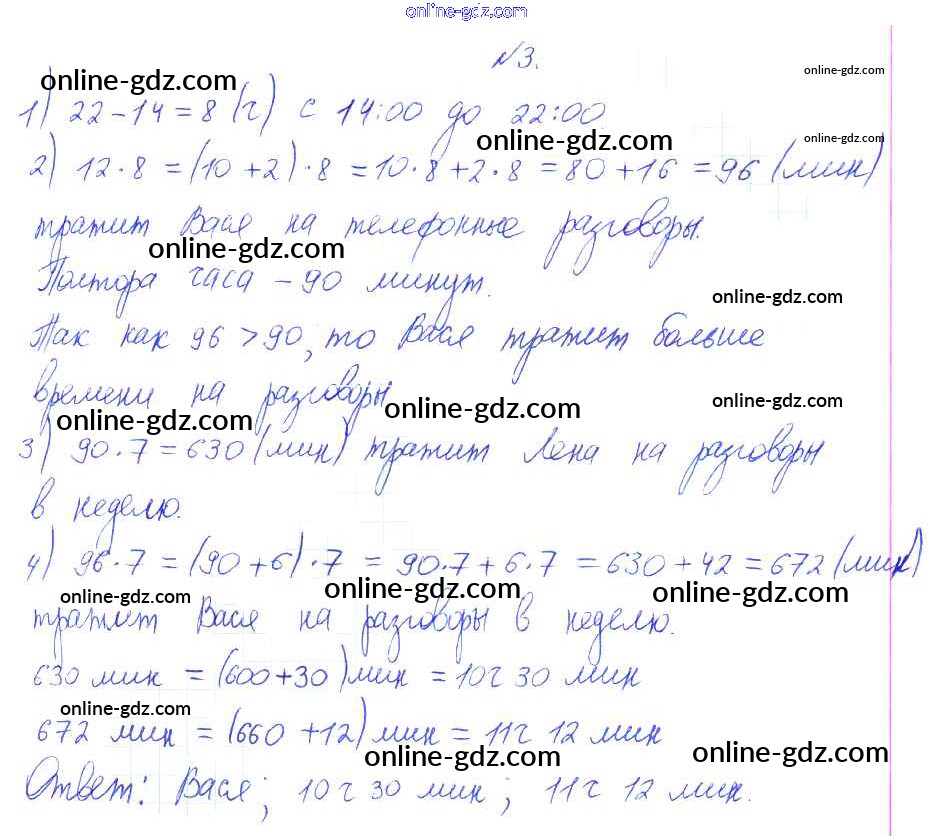 online-gdz.com
№3.
online-gdz.com online-gdz.com
1) 22-14=8 (г) с 14:00 до 22:00
online-gdz.com online-gdz.com
2) 12·8=(10+2)·8=10·8+2·8=80+16=96 (мин)
тратит Вася на телефонные разговоры.
online-gdz.com
Полтора часа - 90 минут.
online-gdz.com
Так как 96>90, то Вася тратит больше
времени на разговоры
online-gdz.com online-gdz.com online-gdz.com
3) 90·7=630 (мин) тратит Лена на разговоры
в неделю.
4) 96·7=(90+6)·7=90·7+6·7=630+42=672 (мин)
online-gdz.com online-gdz.com online-gdz.com
тратит Вася на разговоры в неделю.
630 мин = (600+30) мин = 10ч 30 мин
online-gdz.com
672 мин = (660+12) мин = 11ч 12 мин
online-gdz.com online-gdz.com
Ответ: Вася; 10ч 30 мин; 11ч 12 мин.